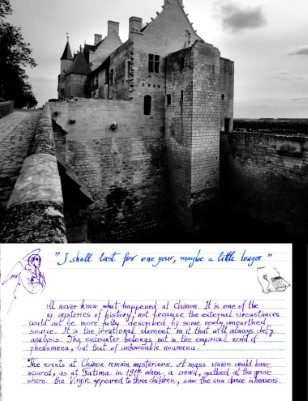 "I shall last for one year, maybe a little longer"
'll never know what happened at Chinon. It is one of the
mysteries of history, not because the external circumstances
could not be more fully described by some newly unearthed
source. It is the irrational element in it that will always defy
analysis. The encounter belongs not in the empirical world of
phenomena, but that of noumena.
"The events at Chinon remain mysterious. A mass vision could have
occured, as at Fatima in 1917 when a crowd, gathered at the grove
where the Virgin appeared to three children, saw the sun dance in heavens.